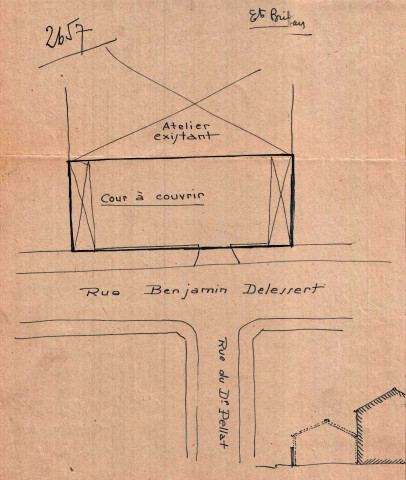 2657
Ets
Atelier
existant
Cour à couvrir
Rue Benjamin Delessert
Rue du Dr Pellat